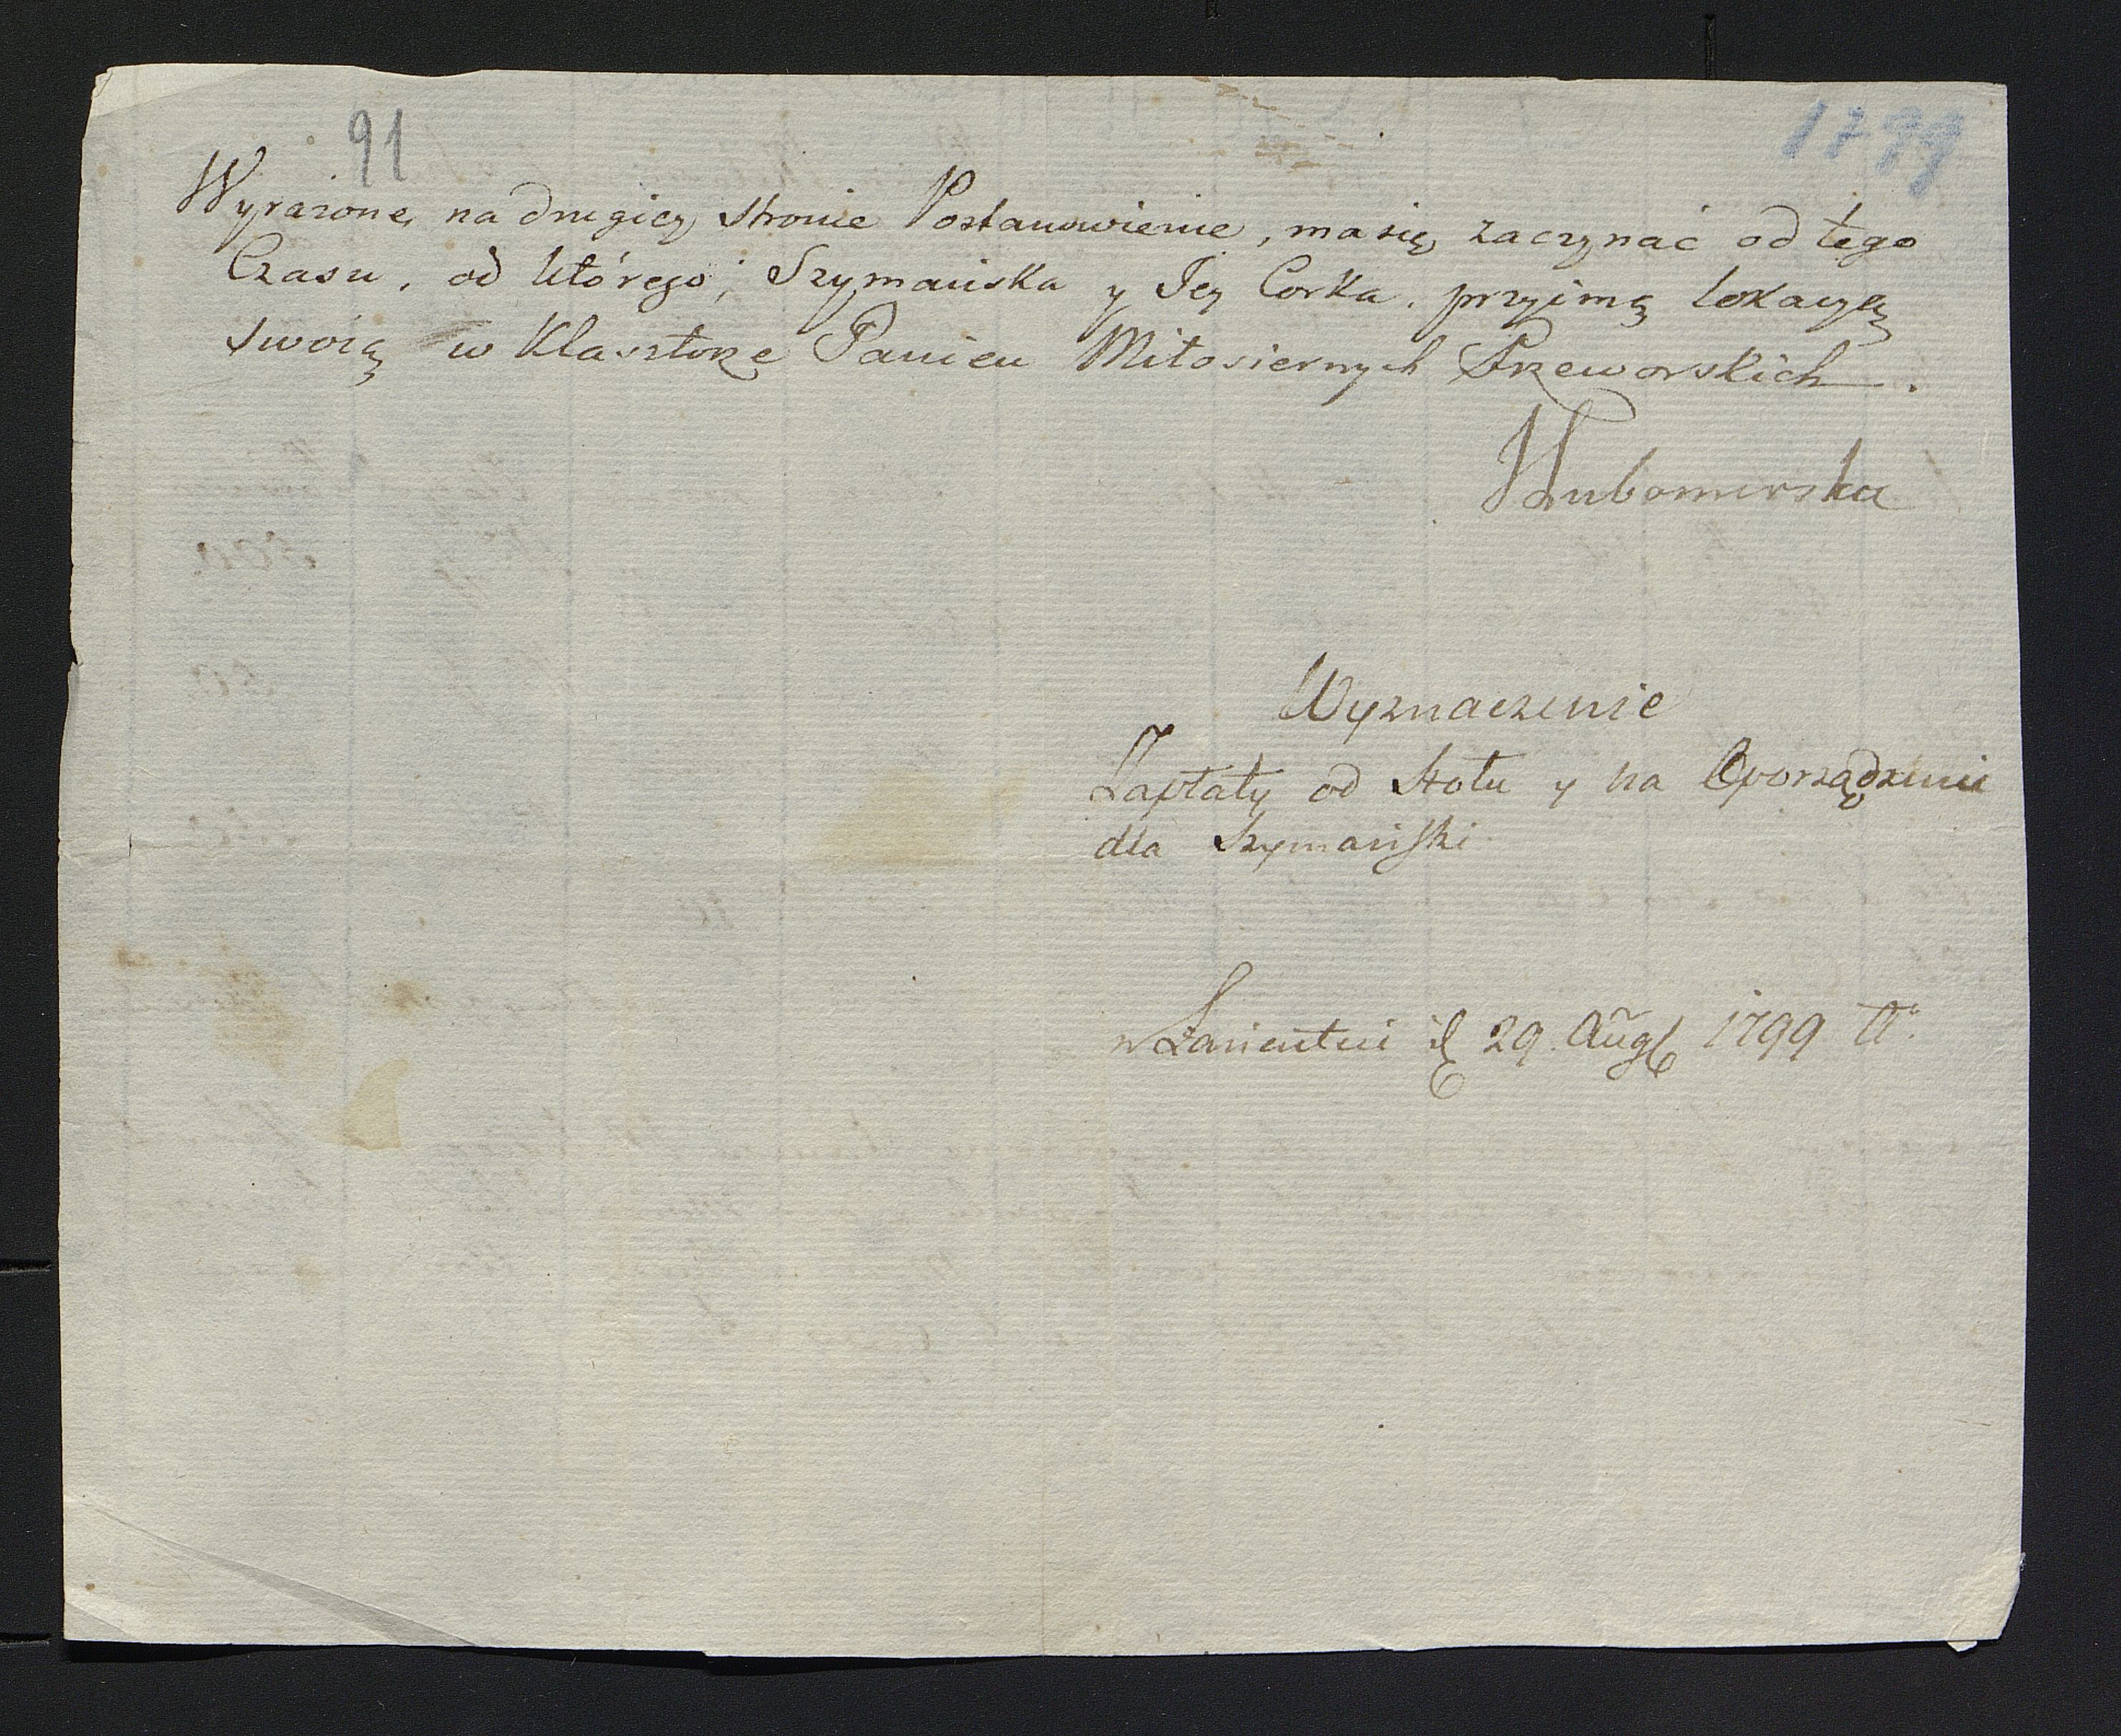 91
1799
Wyrażone na drugiey stronie Postanowienie, ma się zaczynać od tego
Czasu, od którego, Szymańska y Jey Corka, przyimą lokacyą
swoią w Klasztorze Panien Miłosiernych Przeworskich.
Lubomirska
Wyznaczenie
Zapłaty od Stołu y na Oporządzenie
dla Szymańſki
w Łancutui d 29. Aug 1799 A